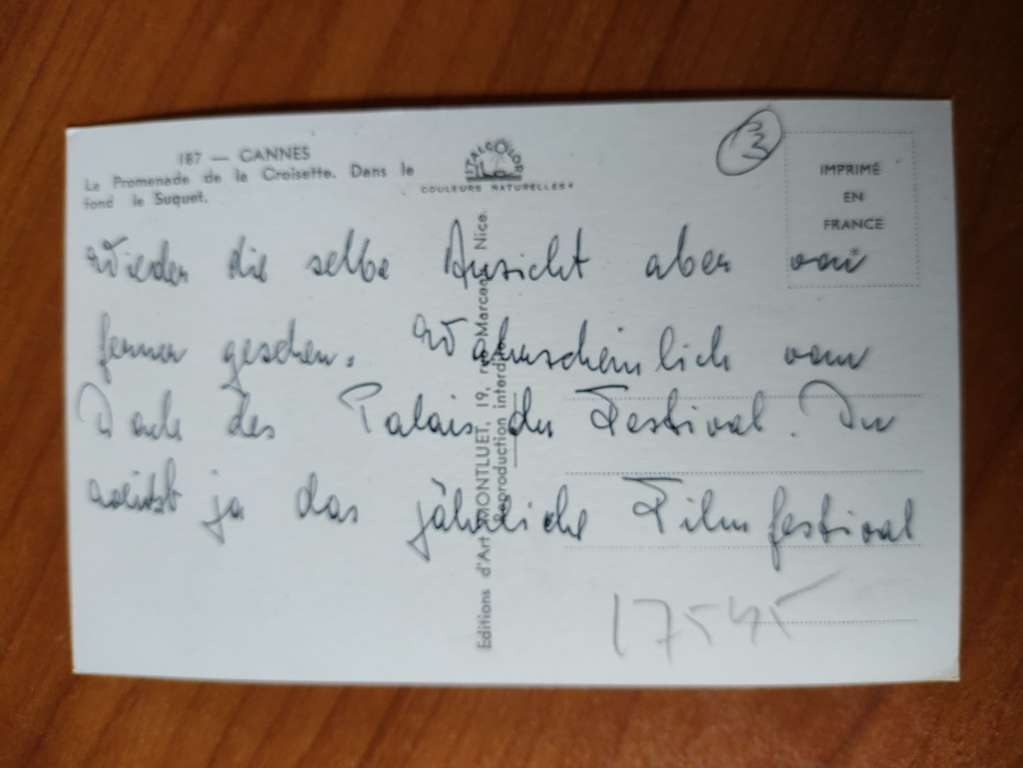 187 — CANNES
La Promenade de la Croisette. Dans le
fond le Suquet.
ITALCOLOR
COULEURS NATURELLES
3
IMPRIMÉ
EN
FRANCE
Wieder die selbe Ansicht aber von
ferner gesehen. Wahrscheinlich vom
Dach des Palais du Festival. Du
weißt ja das jährliche Filmfestival
Editions d'Art MONTLUET, 19, Nice
Reproduction interdite